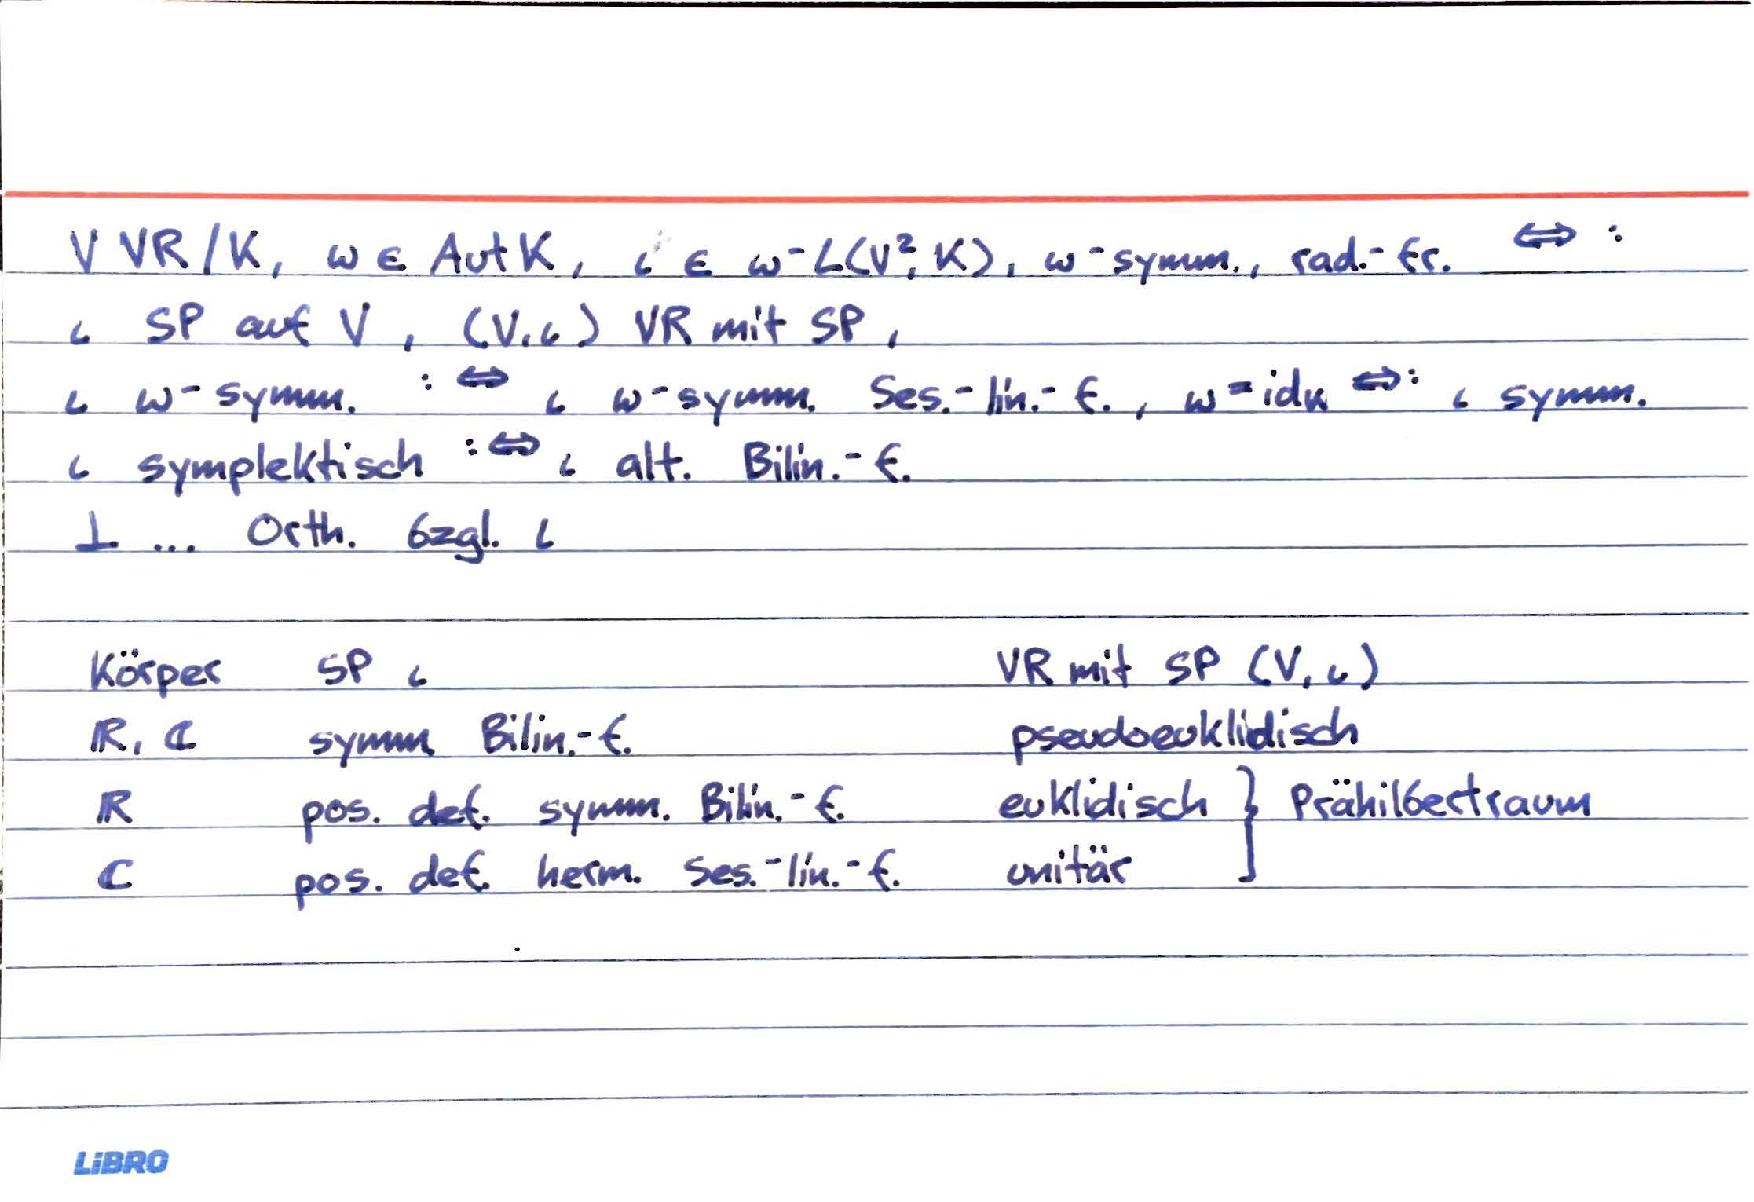 V VR/K, ω ∈ Aut K, ι ∈ ω-L(V²; K), ω-symm., rad.-fr. ⇔:
ι SP auf V, (V, ι) VR mit SP,
ι ω-symm. :⇔ ι ω-symm. Ses.-lin.-f., ω = id_K ⇔: ι symm.
ι symplektisch :⇔ ι alt. Bilin.-f.
⊥ ... Orth. bzgl. ι
Körper SP ι VR mit SP (V, ι)
ℝ, ℂ symm Bilin.-f. pseudoeuklidisch
ℝ pos. def. symm. Bilin.-f. euklidisch } Prähilbertraum
ℂ pos. def. herm. Ses.-lin.-f. unitär
LiBRO